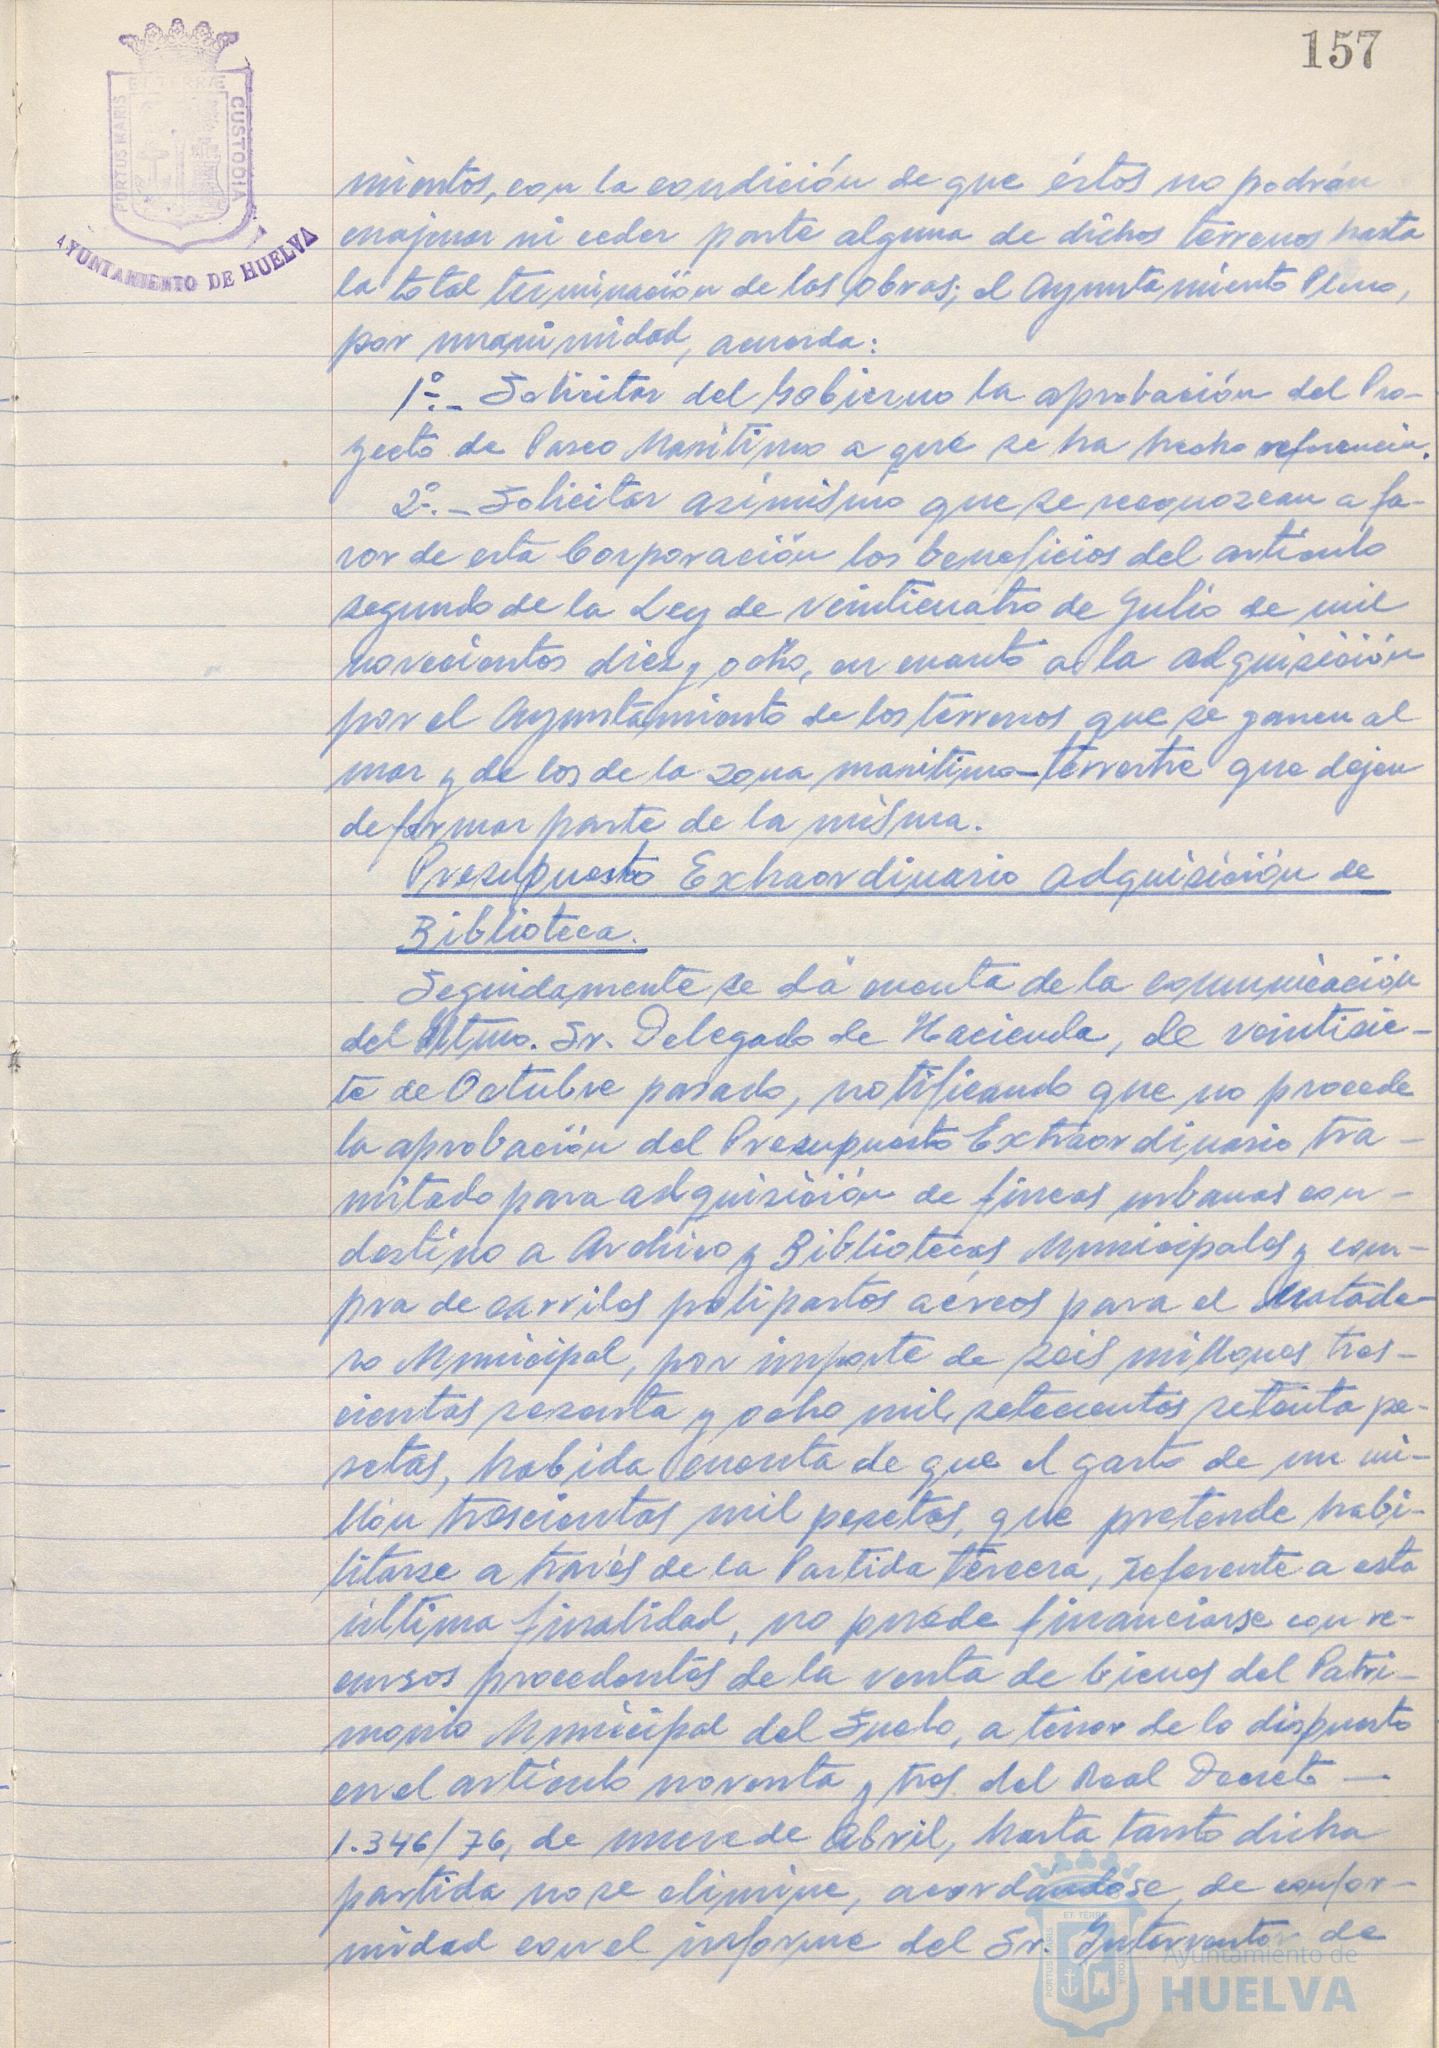 157
PORTUS MARIS
CUSTODIA
AYUNTAMIENTO DE HUELVA
mientos, con la condición de que éstos no podrán
enajenar ni ceder parte alguna de dichos terrenos hasta
la total terminación de las obras; el Ayuntamiento Pleno,
por unanimidad, acuerda:
1º.- Solicitar del Gobierno la aprobación del Pro-
yecto de Paseo Marítimo a que se ha hecho referencia.
2º.- Solicitar asimismo que se reconozcan a fa-
vor de esta Corporación los beneficios del artículo
segundo de la Ley de veinticuatro de Julio de mil
novecientos diez y ocho, en cuanto a la adquisición
por el Ayuntamiento de los terrenos que se ganen al
mar y de los de la zona marítimo-terrestre que dejen
de formar parte de la misma.
Presupuesto Extraordinario adquisición de
Biblioteca.
Seguidamente se dá cuenta de la comunicación
del Iltmo. Sr. Delegado de Hacienda, de veintisie-
te de Octubre pasado, notificando que no procede
la aprobación del Presupuesto Extraordinario tra-
mitado para adquisición de fincas urbanas con-
destino a Archivo y Bibliotecas Municipales y com-
pra de carriles polipastos aéreos para el Matade-
ro Municipal, por importe de seis millones tres-
cientas sesenta y ocho mil setecientos setenta pe-
setas, habida cuenta de que el gasto de un mi-
llón trescientas mil pesetas, que pretende habi-
litarse a través de la Partida tercera, referente a esta
última finalidad, no puede financiarse con re-
cursos procedentes de la venta de bienes del Patri-
monio Municipal del Suelo, a tenor de lo dispuesto
en el artículo noventa y tres del Real Decreto —
1.346/76, de nueve de Abril, hasta tanto dicha
partida no se elimine, acordándose, de confor-
midad con el informe del Sr. Interventor de
Ayuntamiento de
HUELVA